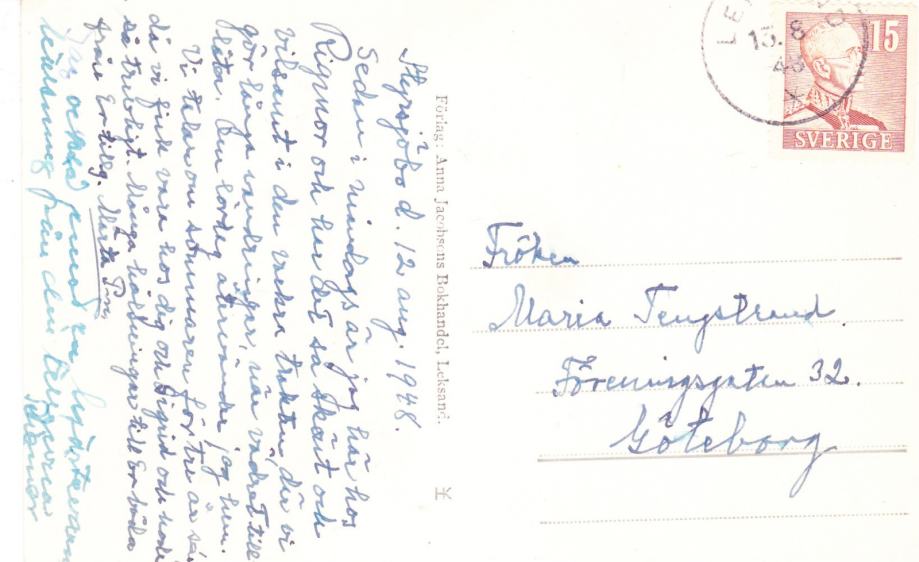 Styrsjöbo d. 12 aug. 1948.
Sedan i måndags är jag här hos
och har det så skönt och
vilsamt i den vackra trakten, där vi
gör långa vandringar, när vädret till-
låta. Den lördag återvänder jag hem.
Vi talar om sommaren för tre år se
då vi fick vara hos dig och Sigrid och hade
så trevligt. Många hälsningar till Er båda
från Er tillg. Märta
Jag också
från den
Förlag: Anna Jacobsons Bokhandel, Leksand.
LE
13.8
48
15
SVERIGE
Fröken
Maria Tengstrand
Föreningsgatan 32.
Göteborg